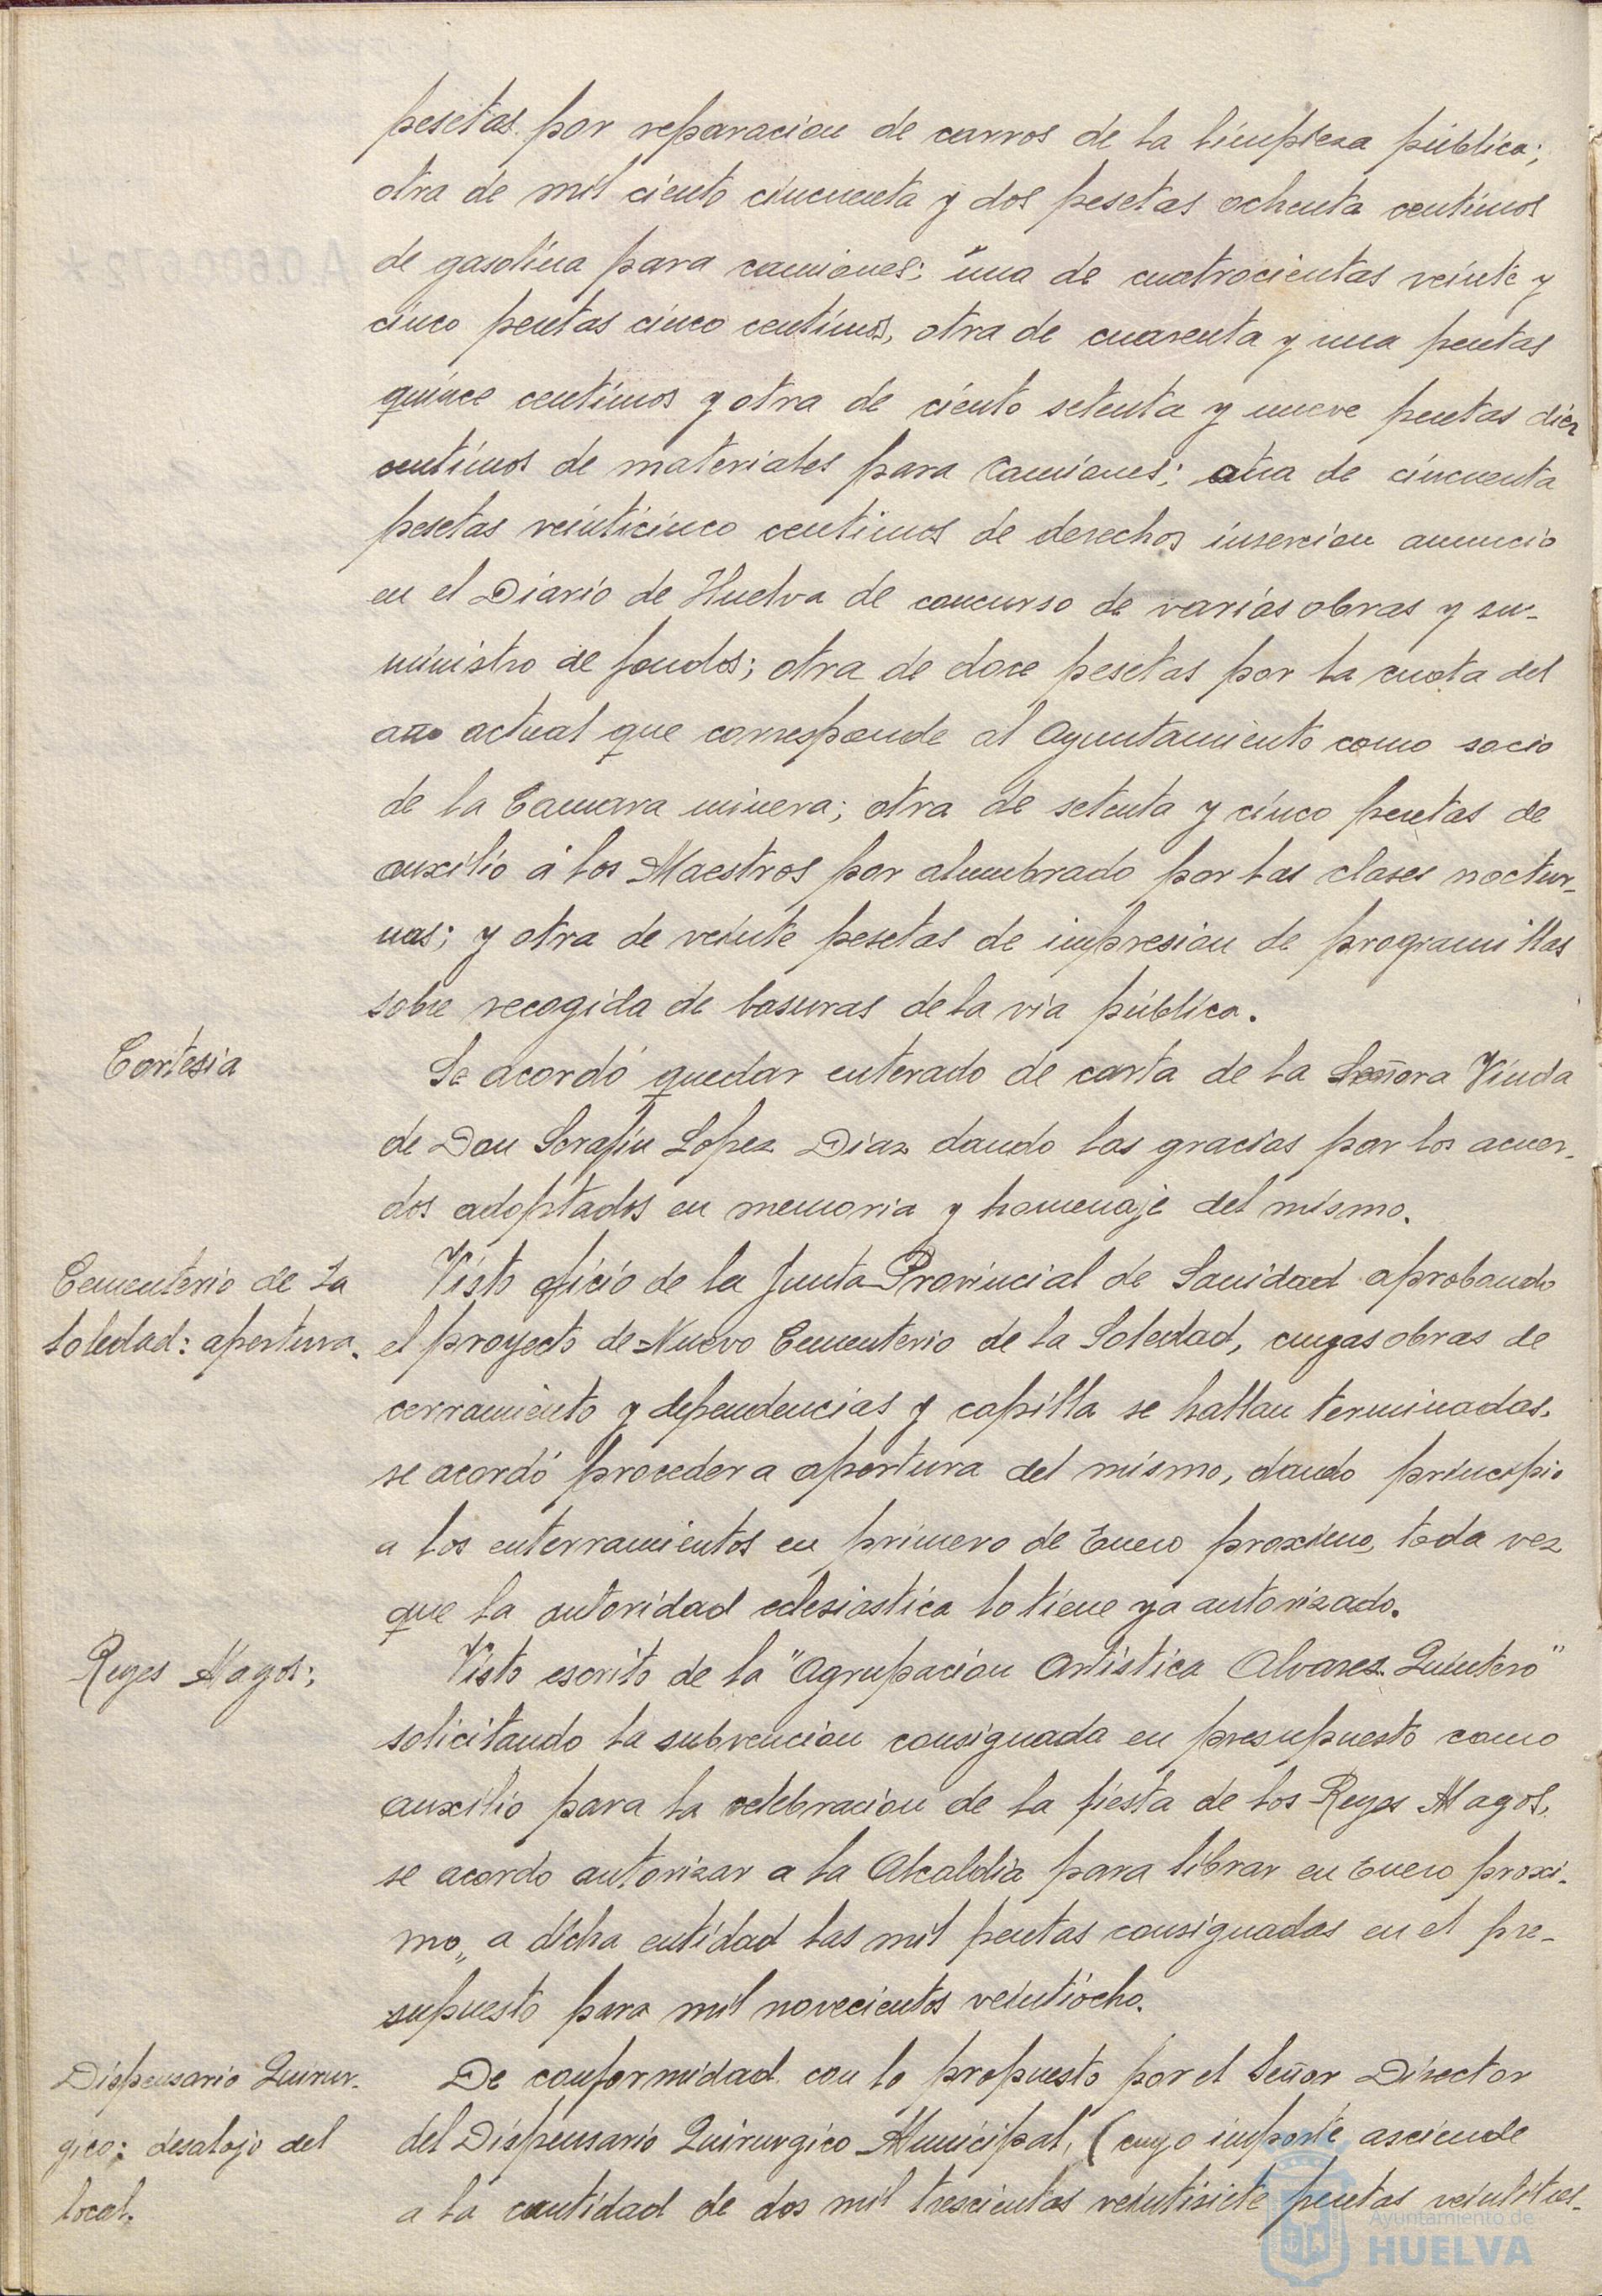 pesetas por reparacion de carros de la limpieza pública;
otra de mil ciento cincuenta y dos pesetas ochenta centimos
de gasolina para camiones; una de cuatrocientas veinte y
cinco pesetas cinco centimos, otra de cuarenta y una pesetas
quince centimos y otra de ciento setenta y nueve pesetas diez
centimos de materiales para camiones; otra de cincuenta
pesetas veinticinco centimos de derechos insercion anuncio
en el Diario de Huelva de concurso de varias obras y su-
ministro de fondos; otra de doce pesetas por la cuota del
año actual que corresponde al Ayuntamiento como socio
de la Camara minera; otra de setenta y cinco pesetas de
auxilio á los Maestros por alumbrado por las clases noctur-
nas; y otra de veinte pesetas de impresion de programillas
sobre recogida de basuras de la via pública.
Cortesia
Se acordó quedar enterado de carta de la Señora Viuda
de Don Serafin Lopez Diaz dando las gracias por los acuer-
dos adoptados en memoria y homenaje del mismo.
Cementerio de La
Soledad: apertura.
Visto oficio de la Junta Provincial de Sanidad aprobando
el proyecto de Nuevo Cementerio de la Soledad, cuyas obras de
cerramiento y dependencias y capilla se hallan terminadas,
se acordó proceder a apertura del mismo, dando principio
a los enterramientos en primero de Enero proximo, toda vez
que la autoridad eclesiastica lo tiene ya autorizado.
Reyes Magos:
Visto escrito de la "Agrupacion Artistica Alvarez Quintero"
solicitando la subvencion consignada en presupuesto como
auxilio para la celebracion de la fiesta de los Reyes Magos,
se acordo autorizar a la Alcaldia para librar en Enero proxi-
mo, a dicha entidad las mil pesetas consignadas en el pre-
supuesto para mil novecientos veintiocho.
Dispensario Quirur-
gico: desalojo del
local.
De conformidad con lo propuesto por el Señor Director
del Dispensario Quirurgico Municipal, (cuyo importe asciende
a la cantidad de dos mil trescientas veintisiete pesetas veintitres
Ayuntamiento de
HUELVA